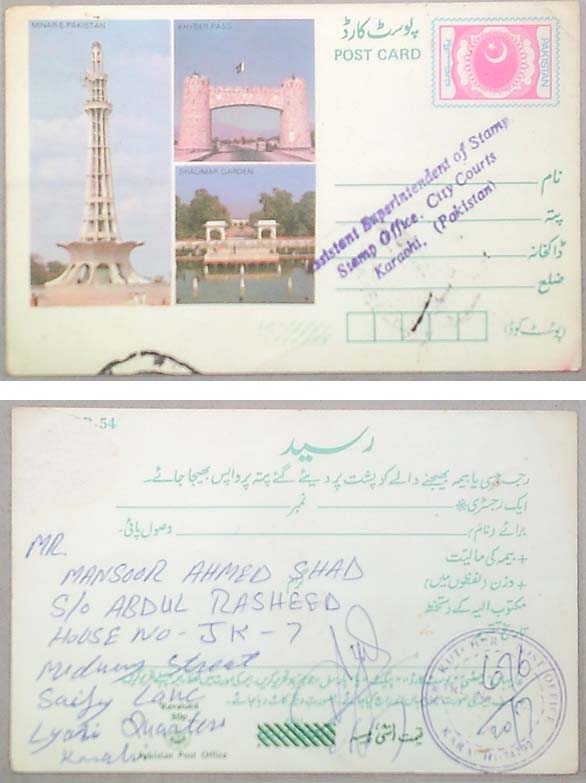 MINAR-E-PAKISTAN
KHYBER PASS
SHALIMAR GARDEN
پوسٹ کارڈ
POST CARD
PAKISTAN
Assistant Superintendent of Stamp
Stamp Office. City Courts
Karachi. (Pakistan)
نام
پتہ
ڈاکخانہ
ضلع
(پوسٹ کوڈ)
54
رسید
رجسٹری یا بیمہ بھیجنے والے کو پشت پر دیئے گئے پتہ پر واپس بھیجا جائے۔
ایک رجسٹری※ نمبر
برائے (نام) وصول پائی۔
+ بیمہ کی مالیت
+ وزن (لفظوں میں)
مکتوب الیہ کے دستخط
MR.
MANSOOR AHMED SHAD
S/o ABDUL RASHEED
HOUSE NO - JK - 7
Street
Saify Lane
Lyari Quarters
Karachi
Pakistan Post Office
POST OFFICE
KARACHI